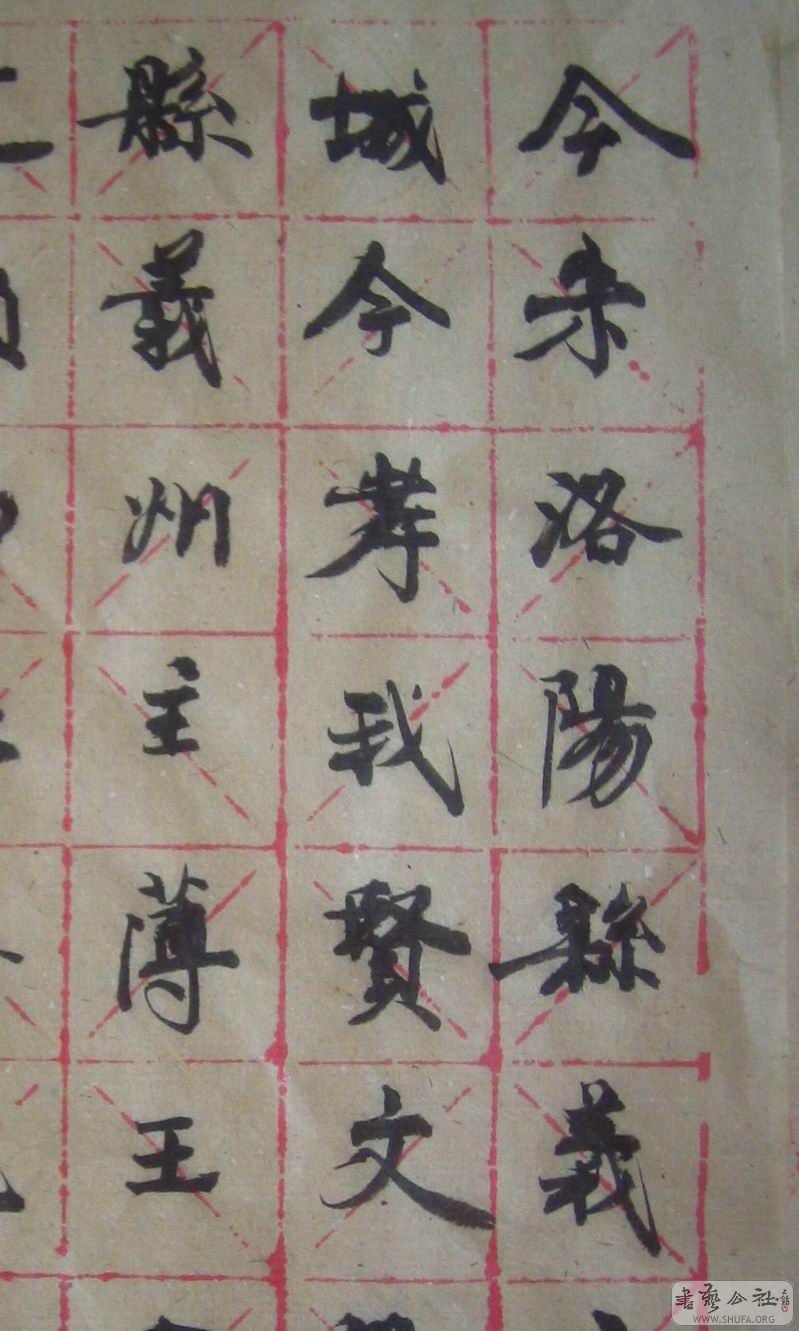 今朱洛陽縣義
城今孝我賢文
縣義州主薄王
書藝公社
WWW.SHUFA.ORG